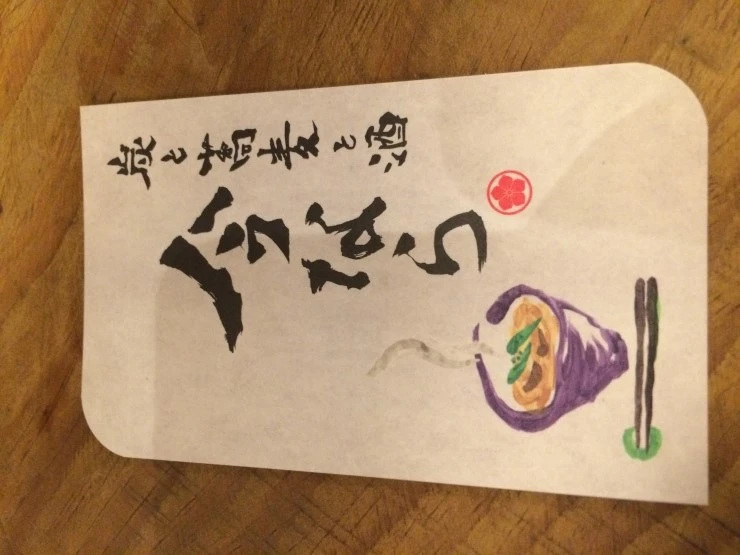 炭と蕎麦と酒
今なら